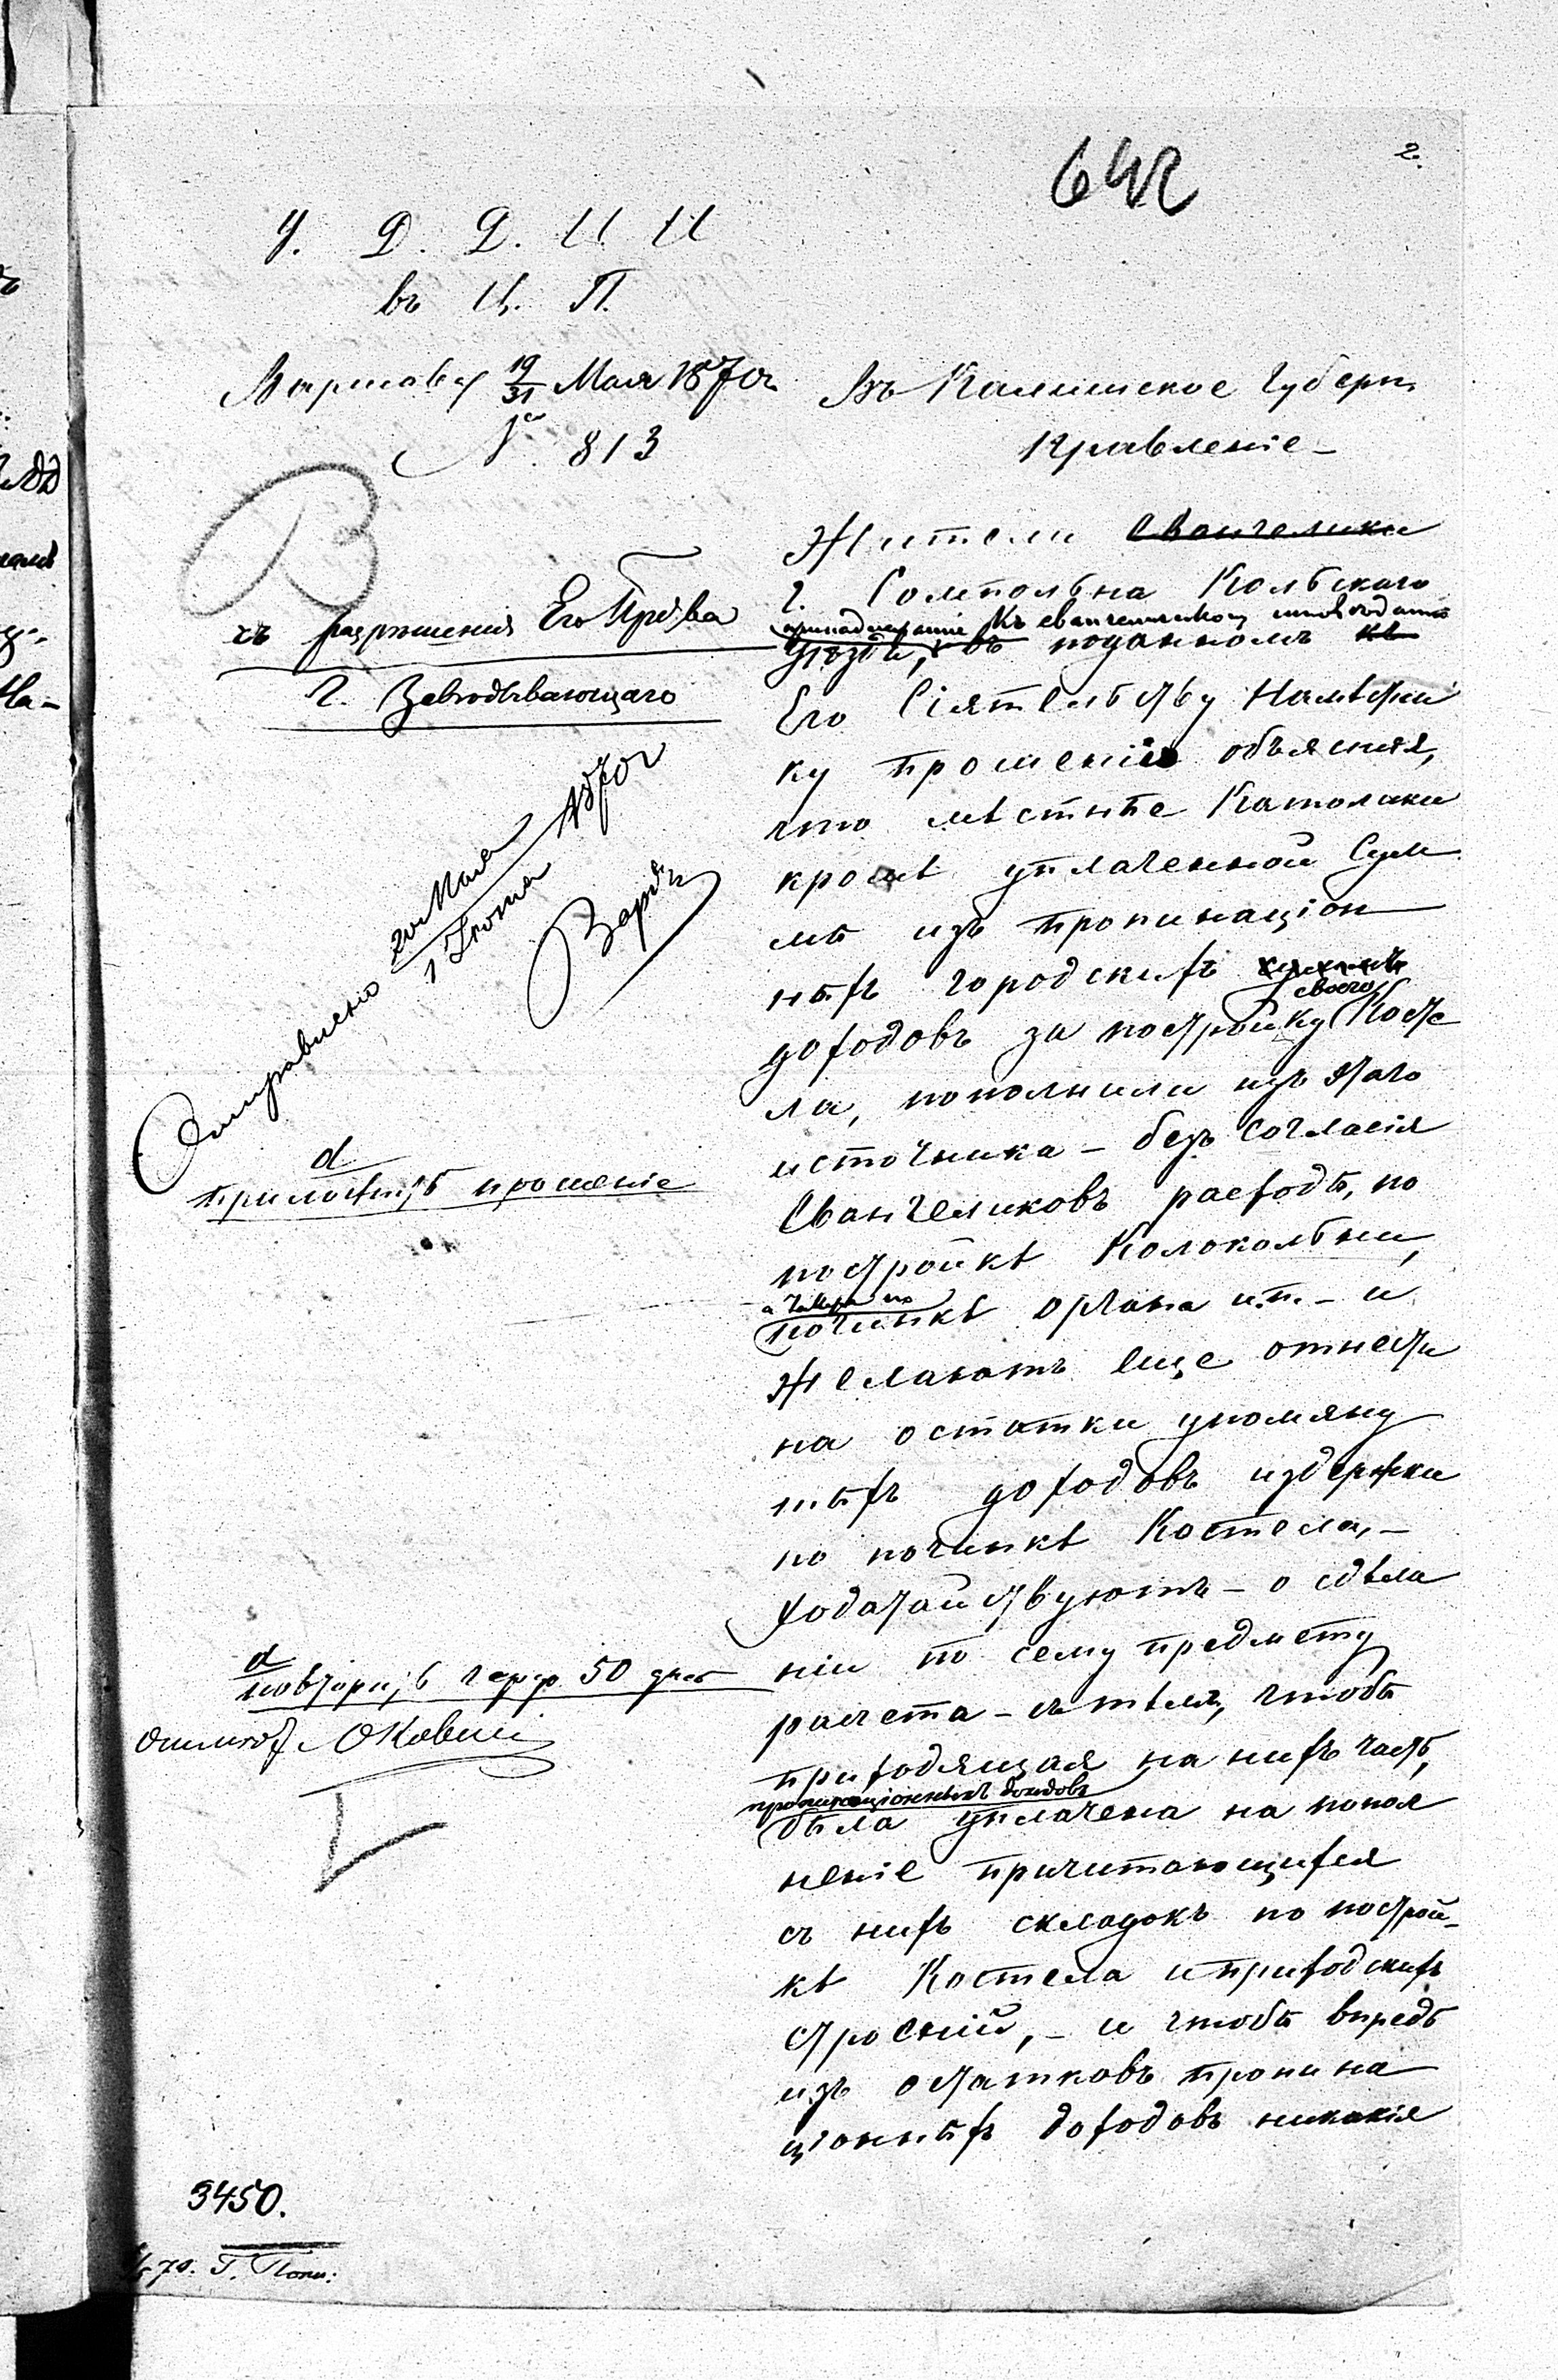 642
2.
У. Д. Д. И. И
въ Ц. П.
Варшава 19/31 Мая 1870 г.
№ 813
Въ Калишское Губерн.
Правленіе
съ разрѣшенія Его Пр-ва
Г. Завѣдывающаго
Отправлено 20 Мая / 1 Іюня 1870 г
приложить прошеніе
повторить чер. 50 дней
3450.
70. Г. Попи:
Жители Евангелики
г. Сомпольна Кольскаго
принадлежащіе къ евангелическому исповѣданію
уѣзда, въ поданномъ
Его Сіятельству Намѣстни
ку прошеніи объясняя,
что мѣстные Католики
кромѣ уплаченной Сум
мы изъ пропинаціон
ныхъ городскихъ
своего
доходовъ за постройку Косте
ла, пополнили изъ этаго
источника – безъ согласія
Евангеликовъ расходы, по
постройкѣ Колокольни,
а также по
починкѣ органа и.п. – и
желаютъ еще отнести
на остатки упомяну
тыхъ доходовъ издержки
по починкѣ Костела, –
ходатайствуютъ – о сдѣла
ніи по сему предмету
расчета – съ тѣмъ, чтобы
приходящая на нихъ часть,
пропинаціонныхъ доходовъ
была уплачена на попол
неніе причитающихся
съ нихъ складокъ по построй-
кѣ Костела и приходскихъ
строеній, – и чтобы впредь
изъ остатковъ пропина
ціонныхъ доходовъ никакія